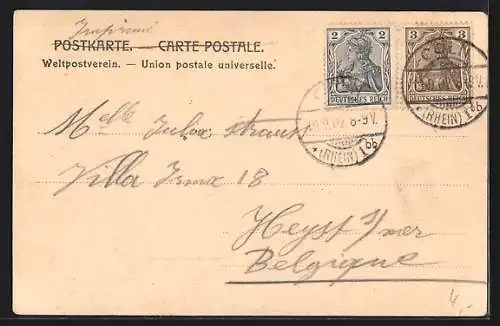 Imprimé
POSTKARTE. — CARTE POSTALE.
Weltpostverein. — Union postale universelle.
2 2
DEUTSCHES REICH
3 3
DEUTSCHES REICH
CÖLN
.9.02. 8-9V.
* (RHEIN) 1 bb
CÖLN
V.
* (RHEIN) 1 bb
Melle Strauss
Villa Irma 18
Heyst s/mer
Belgique
4,-